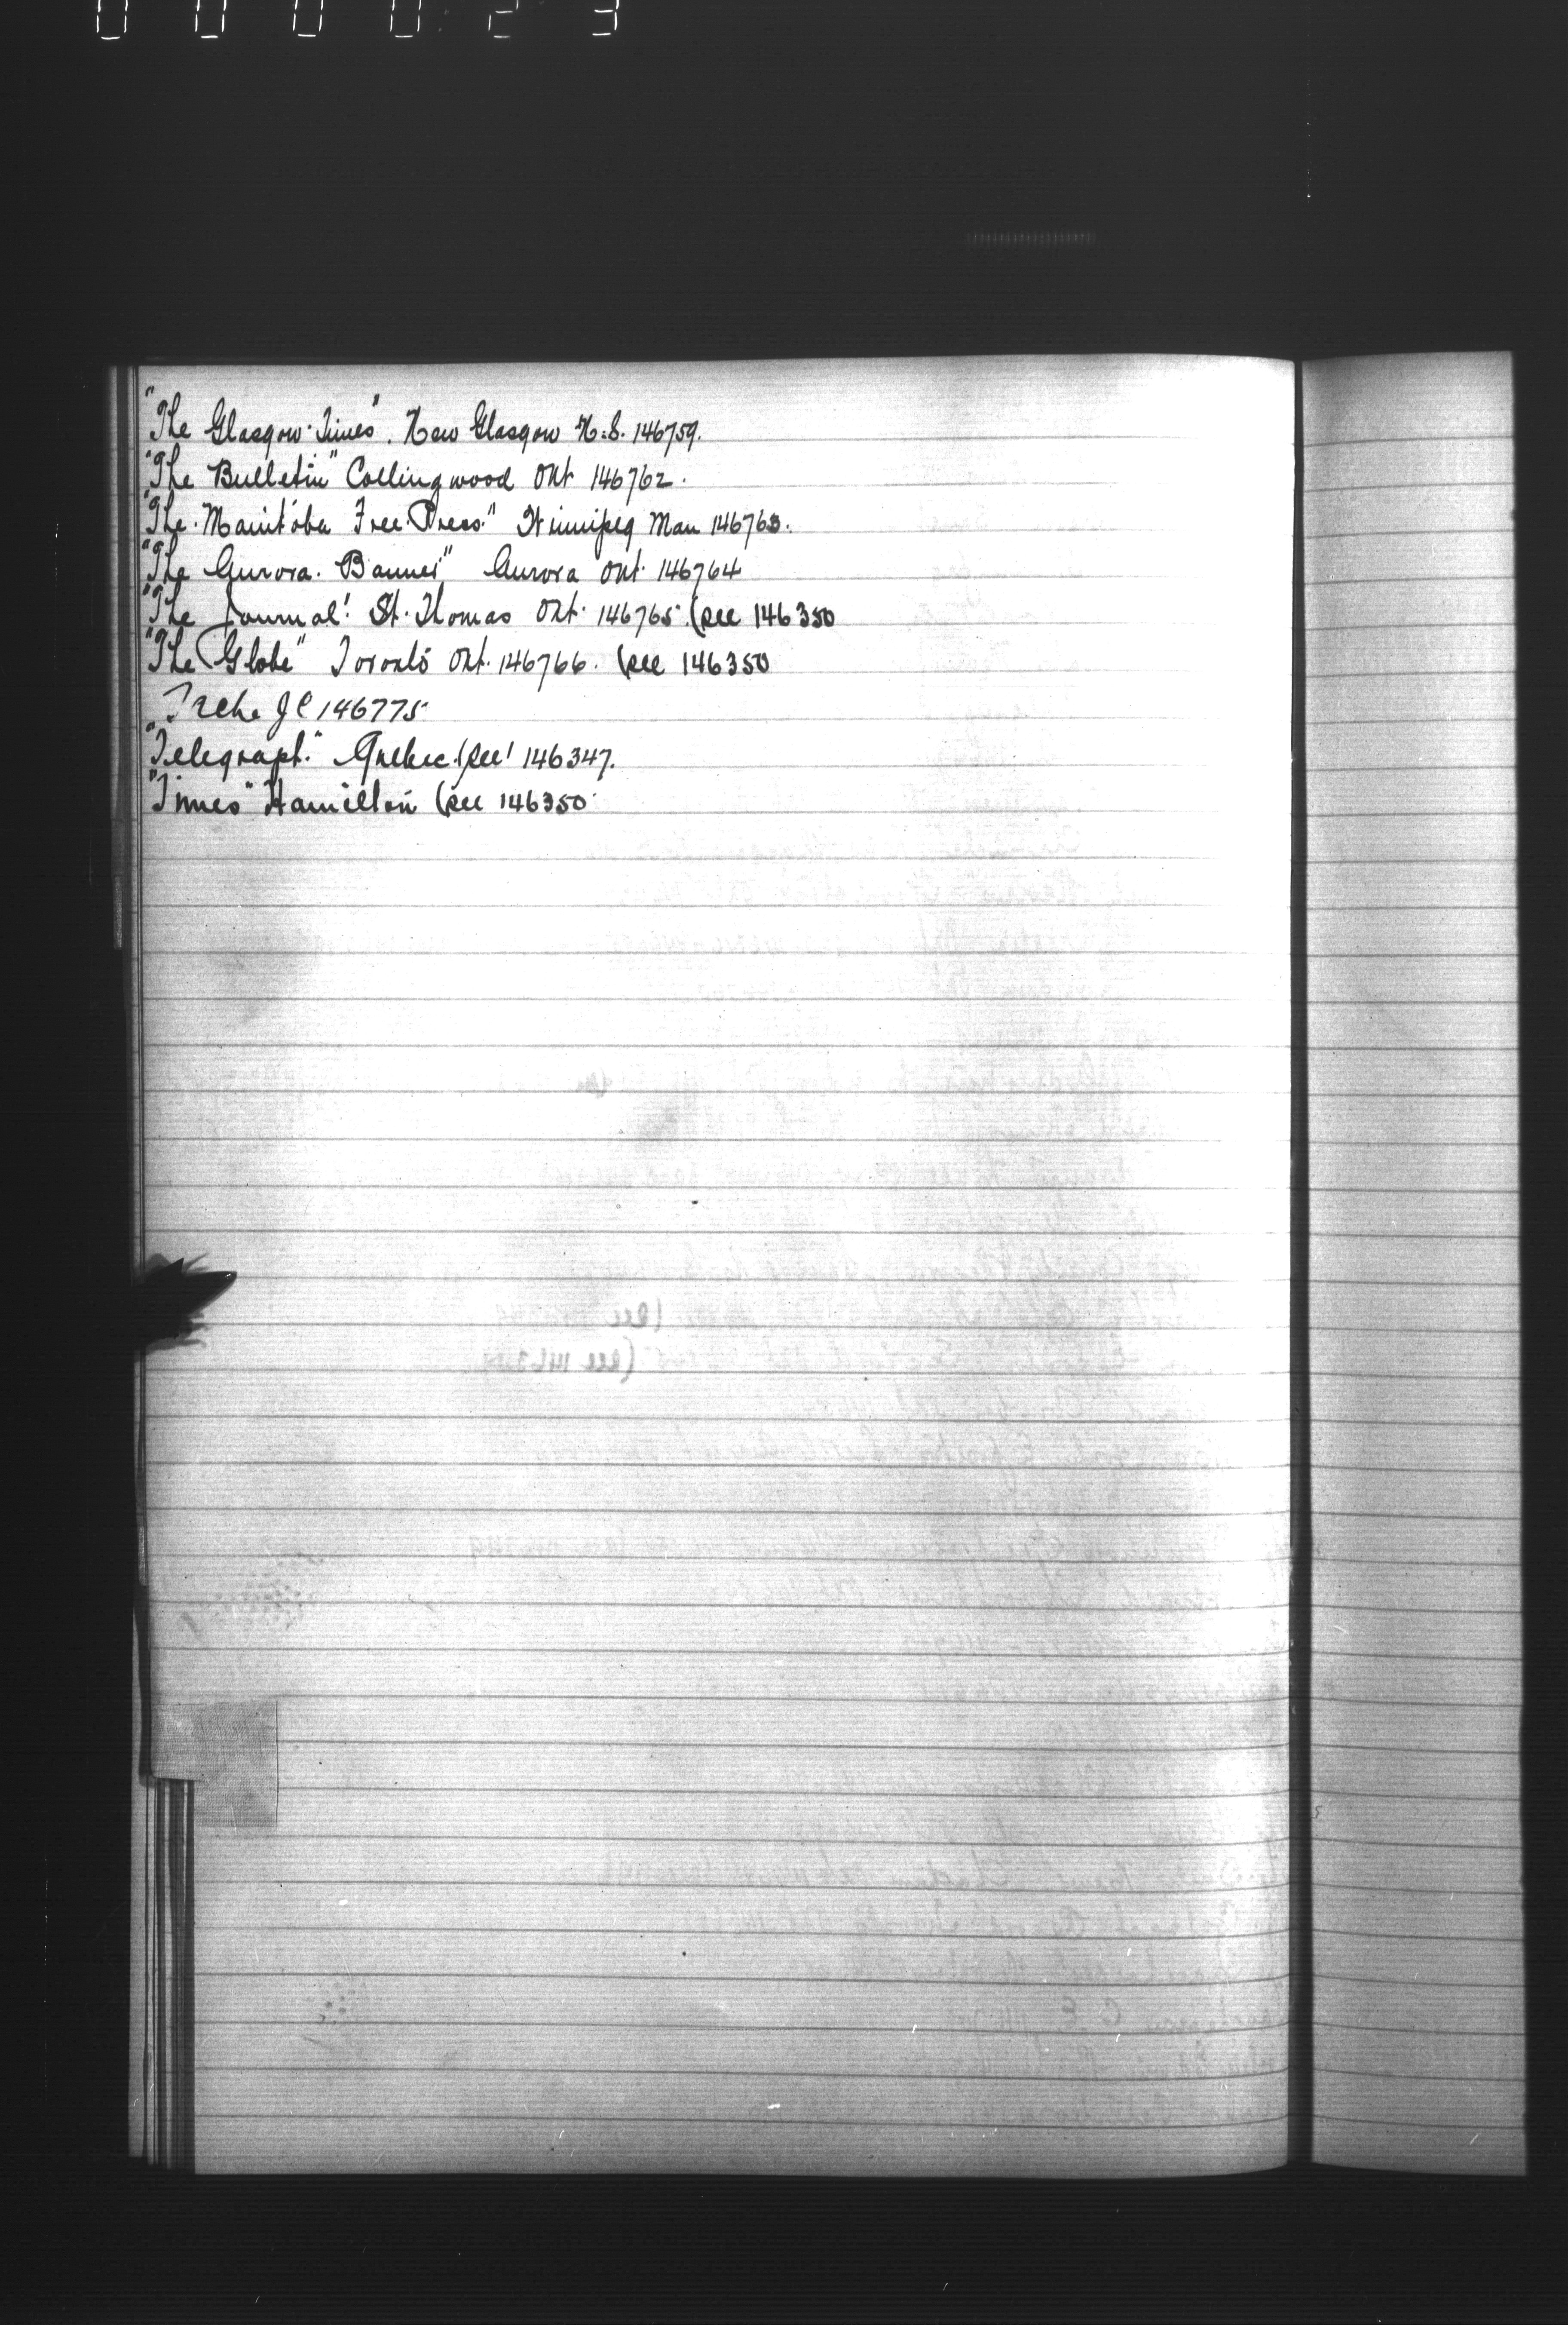 000023
"The Glasgow Times". New Glasgow N.S. 146759.
"The Bulletin" Collingwood Ont 146762.
"The Manitoba Free Press." Winnipeg Man 146763.
"The Aurora. Banner" Aurora Ont. 146764
"The Journal". St. Thomas Ont. 146765. (see 146350
"The Globe" Toronto Ont. 146766. (see 146350
J C 146775
"Telegraph." Quebec (see 146347.
"Times" Hamilton (see 146350